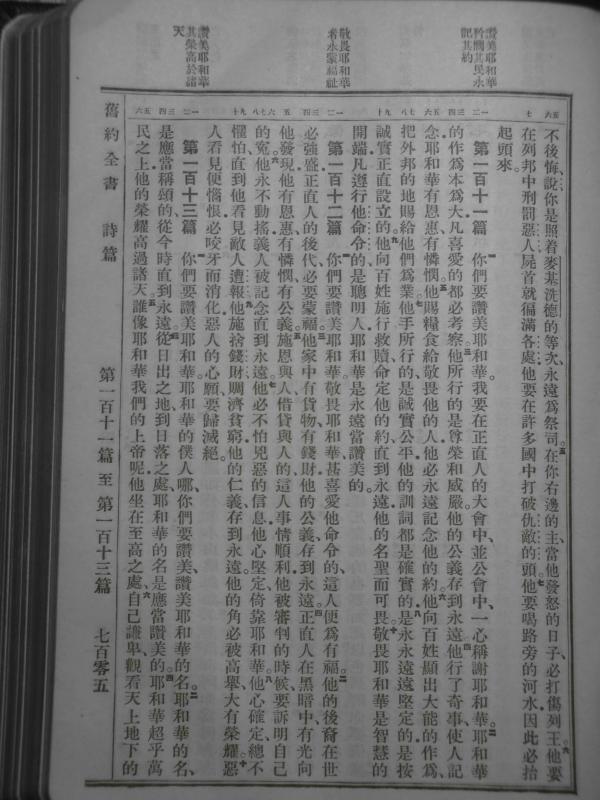 讚美耶和華
矜憫其民永
記其約
敬畏耶和華
者永蒙福祉
讚美耶和華
其榮高於諸
天
不後悔說你是照着麥基洗德的等次永遠爲祭司在你右邊的主當他發怒的日子必打傷列王他要
在列邦中刑罰惡人屍首就徧滿各處他要在許多國中打破仇敵的頭他要喝路旁的河水因此必抬
起頭來
第一百十一篇 你們要讚美耶和華我要在正直人的大會中、並公會中、一心稱謝耶和華耶和華
的作爲本爲大凡喜愛的都必考察他所行的是尊榮和威嚴他的公義存到永遠他行了奇事使人記
念耶和華有恩惠有憐憫他賜糧食給敬畏他的人他必永遠記念他的約他向百姓顯出大能的作爲、
把外邦的地賜給他們爲業他手所行的是誠實公平他的訓詞都是確實的是永永遠遠堅定的是按
誠實正直設立的他向百姓施行救贖命定他的約直到永遠他的名聖而可畏敬畏耶和華是智慧的
開端凡遵行他命令的是聰明人耶和華是永遠當讚美的
第一百十二篇 你們要讚美耶和華敬畏耶和華甚喜愛他命令的、這人便爲有福他的後裔在世
必強盛正直人的後代必要蒙福他家中有貨物有錢財他的公義存到永遠正直人在黑暗中有光向
他發現他有恩惠有憐憫有公義施恩與人借貸與人的這人事情順利他被審判的時候要訴明自己
的寃他永不動搖義人被記念直到永遠他必不怕兇惡的信息他心堅定倚靠耶和華他心確定總不
懼怕直到他看見敵人遭報他施捨錢財賙濟貧窮他的仁義存到永遠他的角必被高舉大有榮耀惡
人看見便惱恨必咬牙而消化惡人的心願要歸滅絕
第一百十三篇 你們要讚美耶和華耶和華的僕人哪、你們要讚美、讚美耶和華的名耶和華的名、
是應當稱頌的從今時直到永遠從日出之地到日落之處耶和華的名是應當讚美的耶和華超乎萬
民之上他的榮耀高過諸天誰像耶和華我們的上帝呢他坐在至高之處自己謙卑觀看天上地下的
舊約全書 詩篇 第一百十一篇 至 第一百十三篇 七百零五